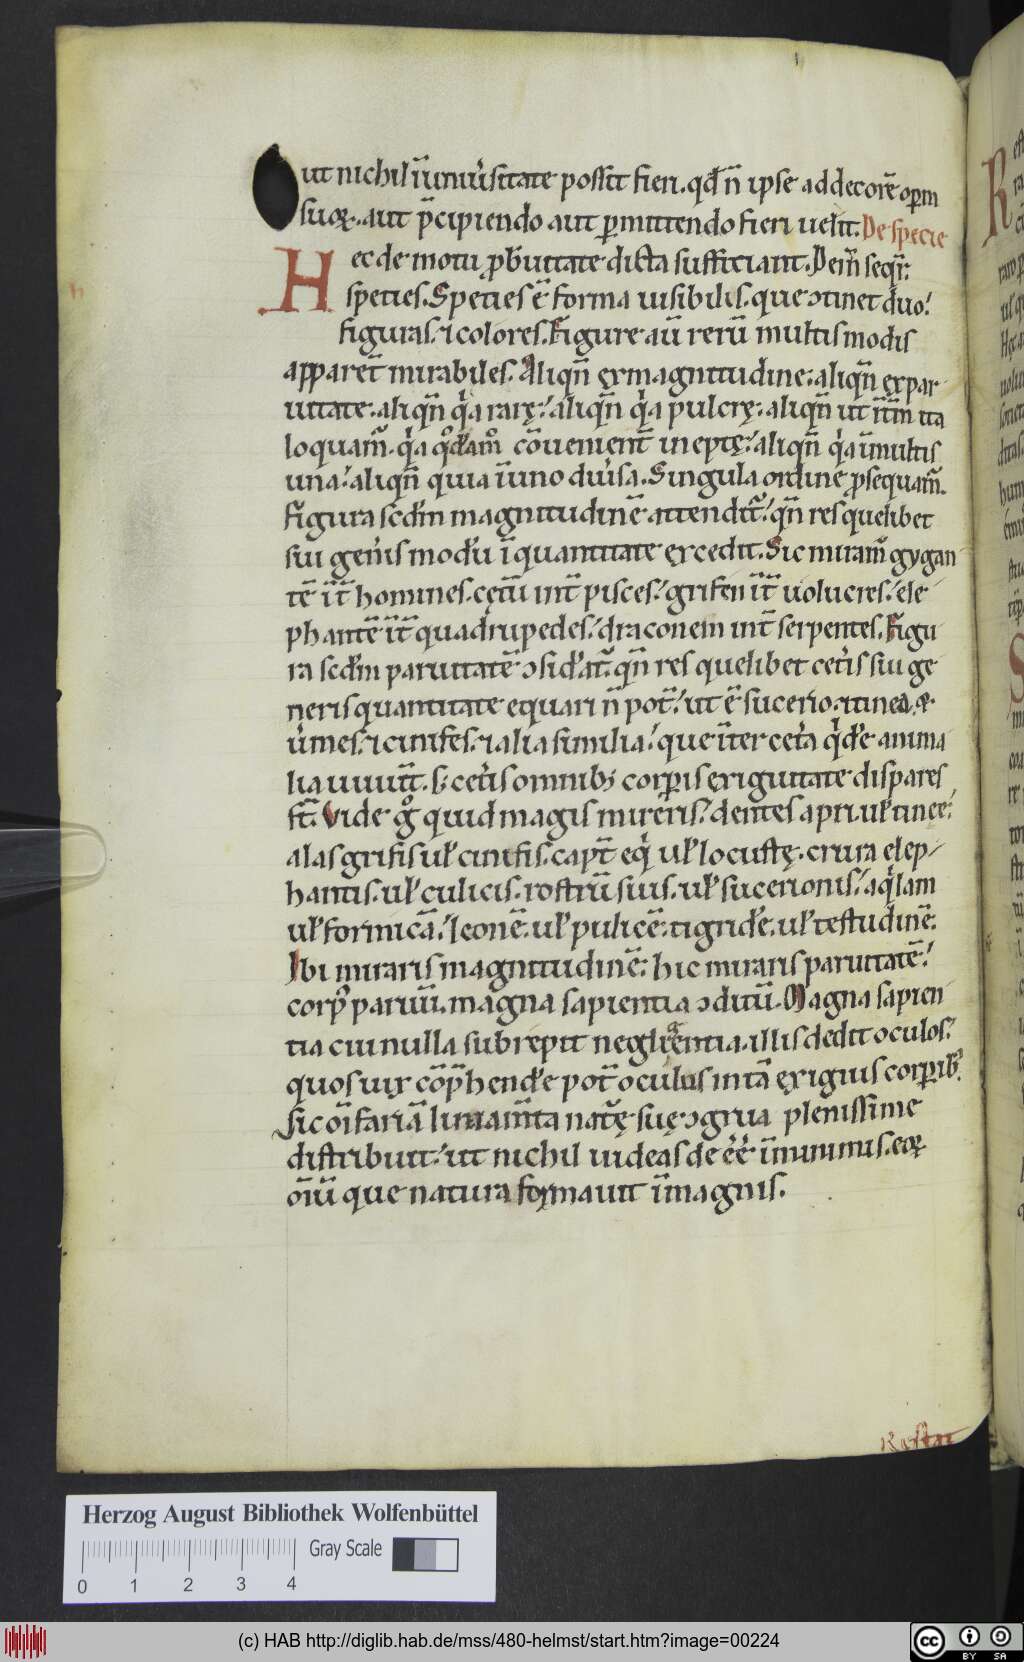 ut nichil ĩuniũsitate possit fieri. qđ ñ ipse ad decorẽ oꝑm
suoꝝ. aut p̃cipiendo aut ꝑmittendo fieri uelit. De specie
Hec de motu ꝓbuitate dicta sufficiant. Dem̃ seqr̃
species. Species ẽ forma uisibilis. que ↄtinet duo.
figuras. ⁊ colores. Figure aũ rerũ multis modis
apparẽt mirabiles. Aliqñ ex magnitudine. aliqñ ex par
uitate. aliqñ qͥa rarę. aliqñ qͥa pulcrę. aliqñ ut ĩt̃m ita
loquam̃. qͥa qͦdam̊ cõuenient̃ ineptę. aliqñ qͥa ĩmultis
una. aliqñ quia ĩuno diũsa. Singula ordine ꝓsequam̃.
Figura scd̃m magnitudinẽ attendit̃. qñ res quelibet
sui geñis modũ ĩ quantitate excedit. Sic miram̃ gygan
tẽ ĩt̃ homines. cętũ int̃ pisces. grifen ĩt̃ uolucres. ele
phantẽ ĩt̃ quadrupedes. draconem int̃ serpentes. Figu
ra scd̃m paruitatẽ ↄsiderat̃. qñ res quelibet cet̃is sui ge
neris quantitate equari ñ pot̃. ut ẽ sucerio. ⁊ tinea. ⁊
ũmes. ⁊ cinifes. ⁊ alia similia. que ĩter cet̃a qͥdẽ anima
lia uiuũt. s; cet̃is omnibꝫ corꝑis exiguitate dispares
st̃. Vide gͦ quid magis mireris. dentes apri. uł tinee.
alas grifis uł cinifis. capt̃ eqͥ uł locustę. crura elep
hantis. uł culicis. rostrũ suis. uł sucerionis. aqͥlam
uł formicã. leonẽ. uł pulicẽ. tigridẽ. uł testudinẽ.
Ibi miraris magnitudinẽ. hic miraris paruitatẽ.
corpͦ paruũ. magna sapientia ↄditũ. Magna sapien
tia cui nulla subrepit negligentia. illis dedit oculos.
quos uix cõp̃hendẽ pot̃ oculus intã exiguis corꝑibꝫ.
sic oĩfariã liniam̃ta nat̃ę suę ↄgrua plenissime
distribuit. ut nichil uideas deẽẽ ĩminimis. eoꝝ
oĩũ que natura formauit ĩmagnis.
Herzog August Bibliothek Wolfenbüttel
Gray Scale
0 1 2 3 4
(c) HAB http://diglib.hab.de/mss/480-helmst/start.htm?image=00224
cc BY SA